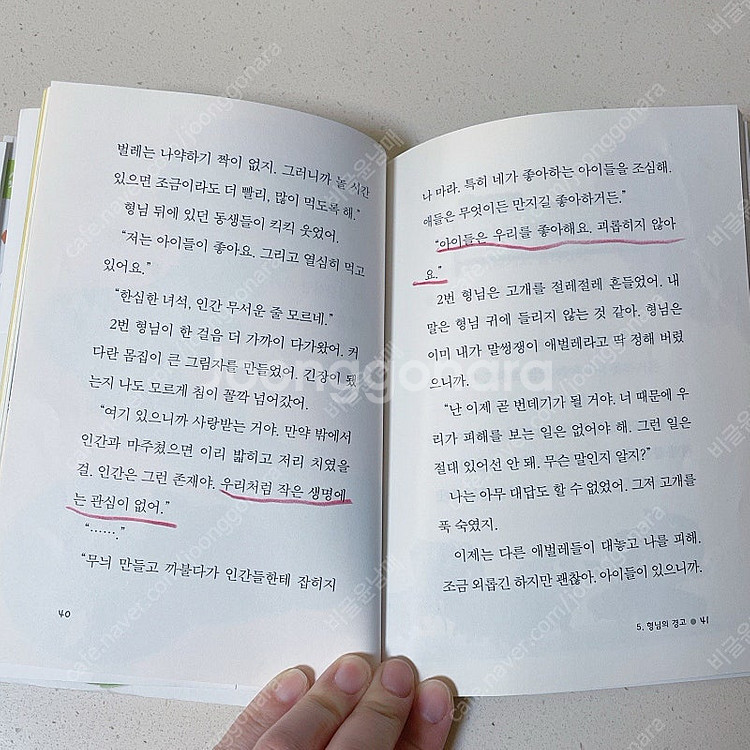 벌레는 나약하기 짝이 없지. 그러니까 놀 시간
있으면 조금이라도 더 빨리, 많이 먹도록 해.”
형님 뒤에 있던 동생들이 킥킥 웃었어.
“저는 아이들이 좋아요. 그리고 열심히 먹고
있어요.”
“한심한 녀석, 인간 무서운 줄 모르네.”
2번 형님이 한 걸음 더 가까이 다가왔어. 커
다란 몸집이 큰 그림자를 만들었어. 긴장이 됐
는지 나도 모르게 침이 꼴깍 넘어갔어.
“여기 있으니까 사랑받는 거야. 만약 밖에서
인간과 마주쳤으면 이리 밟히고 저리 치였을
걸. 인간은 그런 존재야. 우리처럼 작은 생명에
는 관심이 없어.”
“…….”
“무늬 만들고 까불다가 인간들한테 잡히지
40
나 마라. 특히 네가 좋아하는 아이들을 조심해.
애들은 무엇이든 만지길 좋아하거든.”
“아이들은 우리를 좋아해요. 괴롭히지 않아
요.”
2번 형님은 고개를 절레절레 흔들었어. 내
말은 형님 귀에 들리지 않는 것 같아. 형님은
이미 내가 말썽쟁이 애벌레라고 딱 정해 버렸
으니까.
“난 이제 곧 번데기가 될 거야. 너 때문에 우
리가 피해를 보는 일은 없어야 해. 그런 일은
절대 있어선 안 돼. 무슨 말인지 알지?”
나는 아무 대답도 할 수 없었어. 그저 고개를
푹 숙였지.
이제는 다른 애벌레들이 대놓고 나를 피해.
조금 외롭긴 하지만 괜찮아. 아이들이 있으니까.
5. 형님의 경고 ● 41
joonggonara
cafe.naver.com/joonggonara
비글윤남매